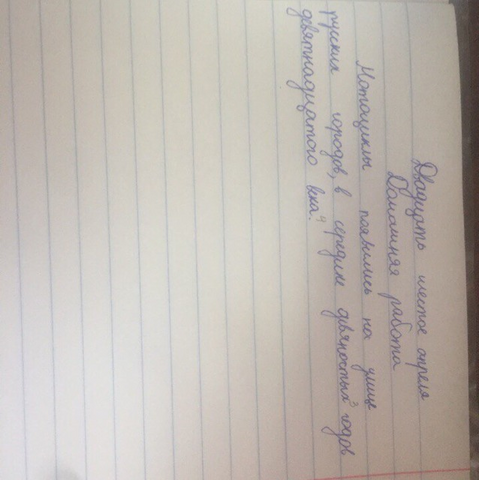 Двадцать шестое апреля
Домашняя работа
Мотоциклы появились на улице
русских городов, в середине девяностых³ годов
девятнадцатого века.⁴